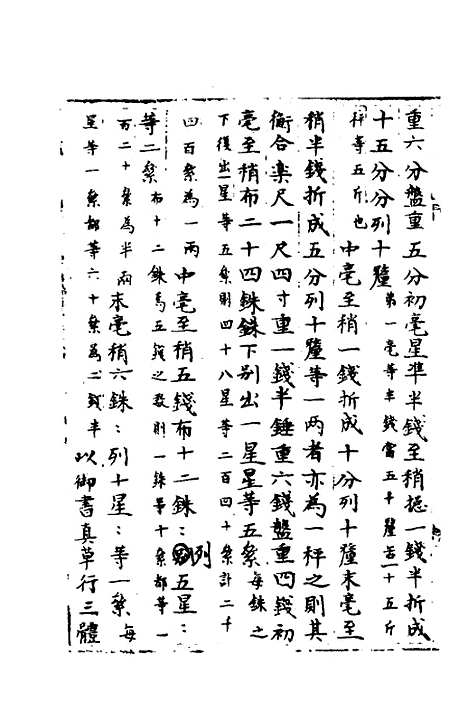 重六分盤重五分初毫星準半錢至稍總一錢半折成
十五分分列十釐第一毫等半錢當五十釐若一十五斤
秤等五斤也中毫至稍一錢折成十分列十釐末毫至
稍半錢折成五分列十釐等一兩者亦為一秤之則其
衡合樂尺一尺四寸重一錢半錘重六錢盤重四錢初
毫至稍布二十四銖銖下別出一星星等五絫每銖之
下復出一星等五絫則四十八星等二百四十絫計二千
四百絫為一兩中毫至稍五錢布十二銖:列五星:
等二絫布十二銖為五錢之數則一銖等十絫都等一
百二十絫為半兩末毫稍六銖:列十星:等一絫每
星等一絫都等六十絫為二錢半以御書真草行三體